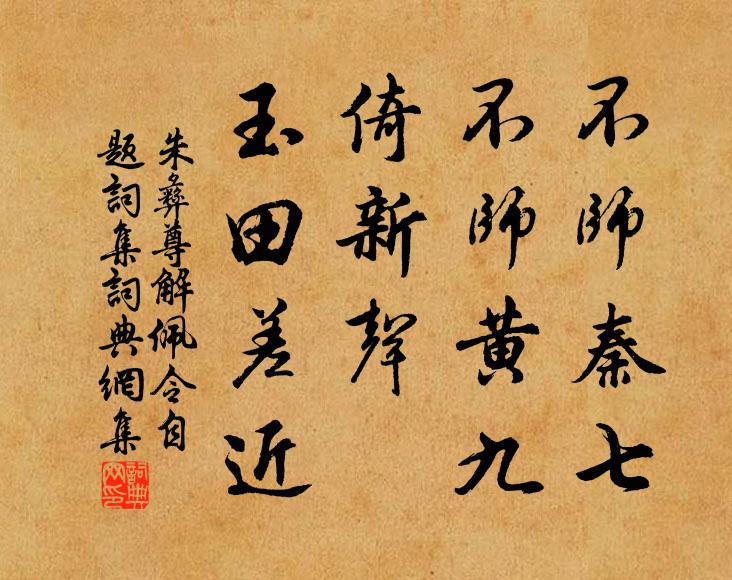 不師秦七
不師黃九
倚新聲
玉田差近
朱彝尊解佩令自
題詞集詞典網集
詞典
网印